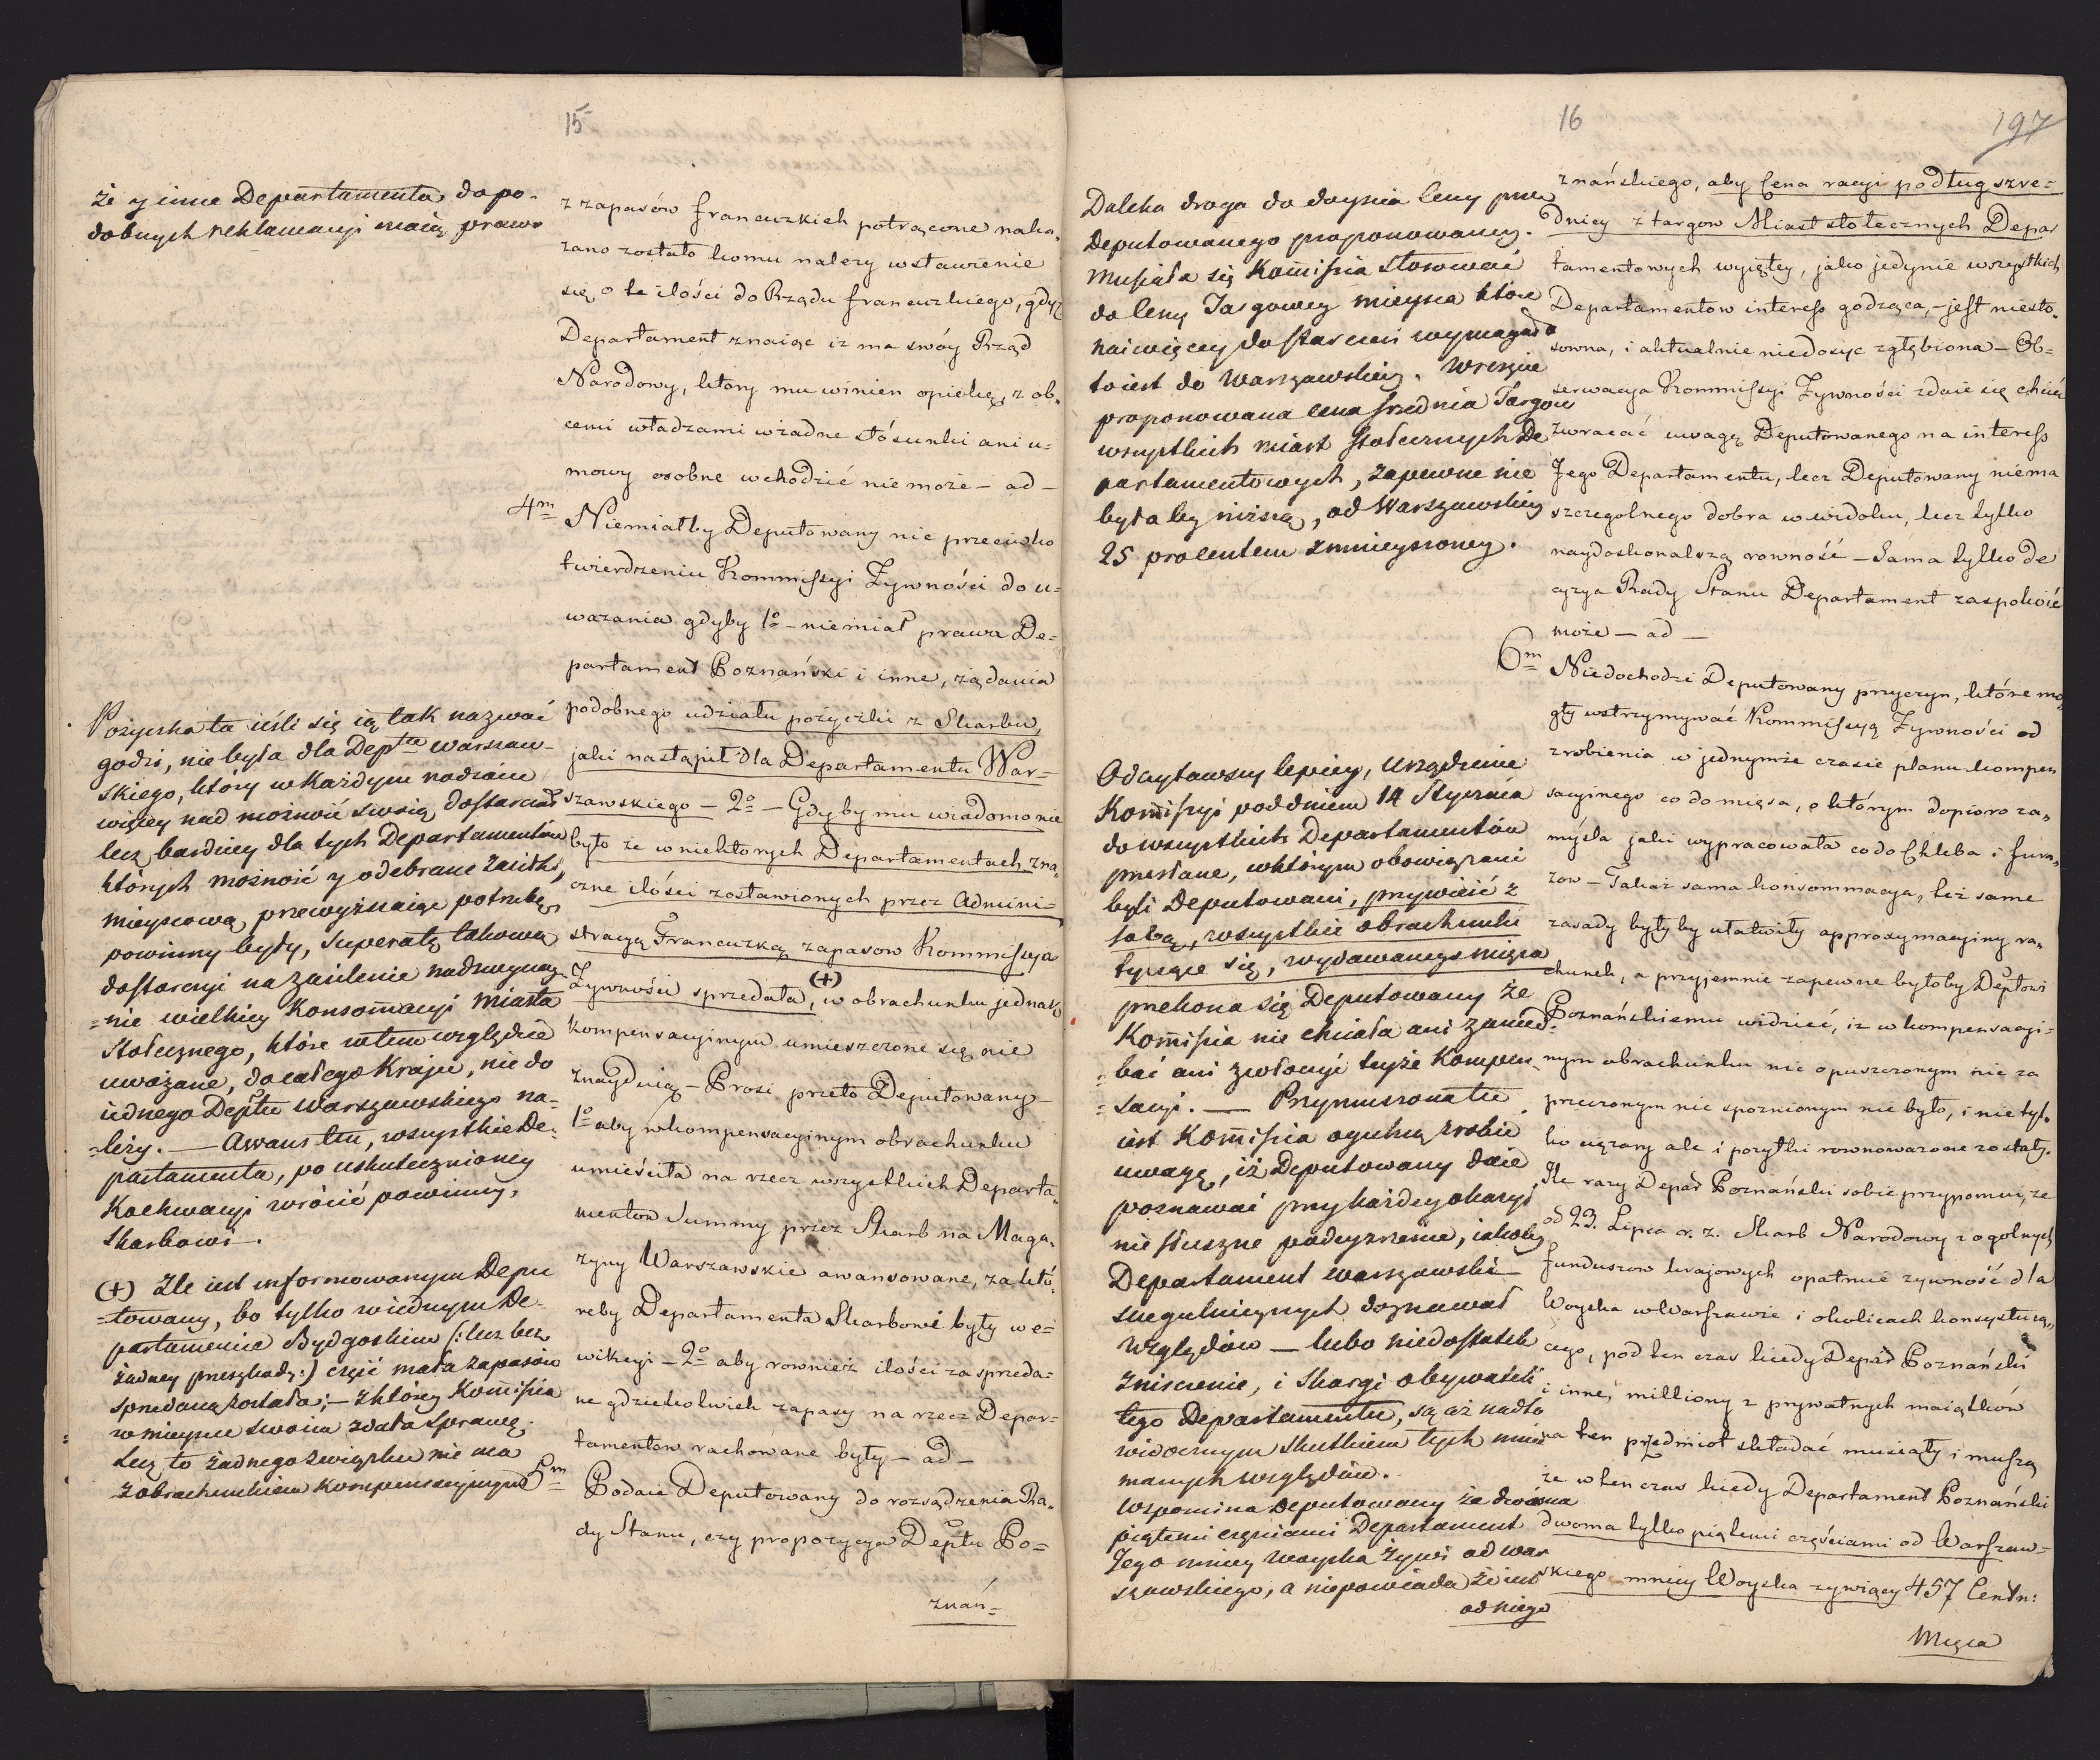 15
że y inne Departamenta do po-
dobnych reklamacyi maią prawo
Pożyczka ta ieśli się ią tak nazwać
godzi, nie była dla Deptu warszaw-
skiego, który w każdym rodzaiu
więcey nad możność swoią dostarczał
lecz bardziey dla tych Departamentów
których możność y odebrane zasiłki,
mieyscową przewyższaiąc potrzebę
powinny były, superatę takową
dostarczyć na zasilenie nadzwyczay
=nie wielkiey Konsomacyi miasta
Stołecznego, które w tem względzie
uważane, do całego Kraju, nie do
iednego Deptu Warszawskiego na-
=leży. — Awans ten, wszystkie De-
partamenta, po uskutecznioney
Koekwacyi wrócić powinny,
Skarbowi.
(+) Źle iest informowanym Depu
=towany, bo tylko w iednym De-
partamencie Bydgoskim (: lecz bez
żadney przeszkody :) część mała zapasów
sprzedaną została; — z którey Kommissia
w mieyscu swoim zdała sprawę.
Lecz to żadnego związku nie ma
z obrachunkiem kompensacyjnym
z zapasów francuzkich potrącone naka,
zano zostało komu należy wstawienie
się o te ilości do Rządu francuzkiego, gdyż
Departament znaiąc iz ma swóy Rząd
Narodowy, ktory mu winien opiekę, z ob,
cemi władzami w żadne stósunki ani u=
mowy osobne wchodzić nie może — ad —
4m Niemiałby Deputowany nic przeciwko
twierdzeniu Kommissyi Żywności do u=
ważania gdyby 1o — niemiał prawa De=
partament Poznański i inne, żądania
podobnego udziału pożyczki z Skarbu,
jaki nastąpił dla Departamentu War=
szawskiego — 2o — Gdyby mu wiadomo nie
było że w niektorych Departamentach zna,
czne ilości zostawionych przez Admini=
stracyą Francuzką zapasow Kommissya
Żywności sprzedała, (+) w obrachunku jednak
kompensacyinym umieszczone się nie
znayduią — Prosi przeto Deputowany —
1o aby w kompensacyinym obrachunku
umieściła na rzecz wszystkich Departa,
mentow Summy przez Skarb na Maga,
zyny Warszawskie awansowane, za któ,
reby Departamenta Skarbowi były w e=
wikcyi — 2o aby rownież ilości za sprzeda=
ne gdziekolwiek zapasy na rzecz Depar=
tamentow rachowane były — ad —
5m Podaie Deputowany do rozsądzenia Ra,
dy Stanu, czy propozycya Deptu Po=
znań=
16
197
Daleka droga do doyścia Ceny przez
Deputowanego proponowaney.
Musiała się Kommissia stosować
do Ceny Targowey mieysca które
naiwięcey dostarczeń wymagało
to iest do Warszawskiey. Wreszcie
proponowana cena srzednia Targów
wszystkich miast stołecznych De
partamentowych, zapewne nie
byłaby niższą, od Warszawskiey
25 procentem zmnieyszoney.
Odczytawszy lepiey, Urządzenie
Kommissyi pod dniem 14 Stycznia
do wszystkich Departamentów
przesłane, w którym obowiązani
byli Deputowani, przywieść z
sobą, wszystkie obrachunki
tyczące się, wydawanego mięsa
przekona się Deputowany że
Kommissia nie chciała ani zanied-
=bać ani zwłóczyć teyże Kompen
=sacyi. — Przymuszona tu
iest Kommissia ogulną zrobić
uwagę, iż Deputowany daie
poznawać przy każdey okazyi
niesłuszne podeyrzenie, iakoby
Departament warszawski
szczegulnieyszych doznawał
względów — lubo niedostatek
zniszczenie, i skargi obywateli
tego Departamentu, są aż nadto
widocznym skutkiem tych mnie
manych względów.
Wspomina Deputowany że dwoma
piątemi częściami Departament
Jego mniey woyska żywi od war
szawskiego, a niepowiada że iest
od niego
znańskiego, aby Cena racyi podług szre=
dniey z targow Miast stołecznych Depar
tamentowych wyiętey, jako jedynie wszystkich
Departamentow interess godząca, — jest niesto,
sowna, i aktualnie niedosyc zgłębiona — Ob=
serwacya Kommissyi Żywności zdaie się chcieć
zwracać uwagę Deputowanego na interess
Jego Departamentu, lecz Deputowany niema
szczegolnego dobra w widoku, lecz tylko
naydoskonalszą rowność — Sama tylko de
cyzya Rady Stanu Departament zaspokoić
może — ad —
6m Niedochodzi Deputowany przyczyn, które mo,
gły wstrzymywać Kommissyą Żywności od
zrobienia w jednymże czasie planu kompen
sacyinego co do mięsa, o którym dopioro za,
myśla jaki wypracowała co do Chleba i fura,
zow — Takaż sama konsommacya, też same
zasady byłyby ułatwiły approxymacyiny ra,
chunek, a przyjemnie zapewne byłoby Deptowi
Poznańskiemu widzieć, iz w kompensacyi=
nym obrachunku nic opuszczonym nic za
przeczonym nic spoznionym nie było, i nie tyl,
ko ciężary ale i pożytki rownoważone zostały.
Ile razy Depart Poznański sobie przypomni, ze
od 23. Lipca r. z. Skarb Narodowy z ogolnych
funduszow krajowych opatruie żywność dla
Woyska w Warszawie i okolicach konsystuią,
cego, pod ten czas kiedy Depart Poznański
i inne, milliony z prywatnych maiątków
na ten przedmiot składać musiały i muszą
że w ten czas kiedy Departament Poznański
dwoma tylko piątemi częściami od Warszaw=
skiego mniey Woyska zywiący 457 Centn:
Mięsa